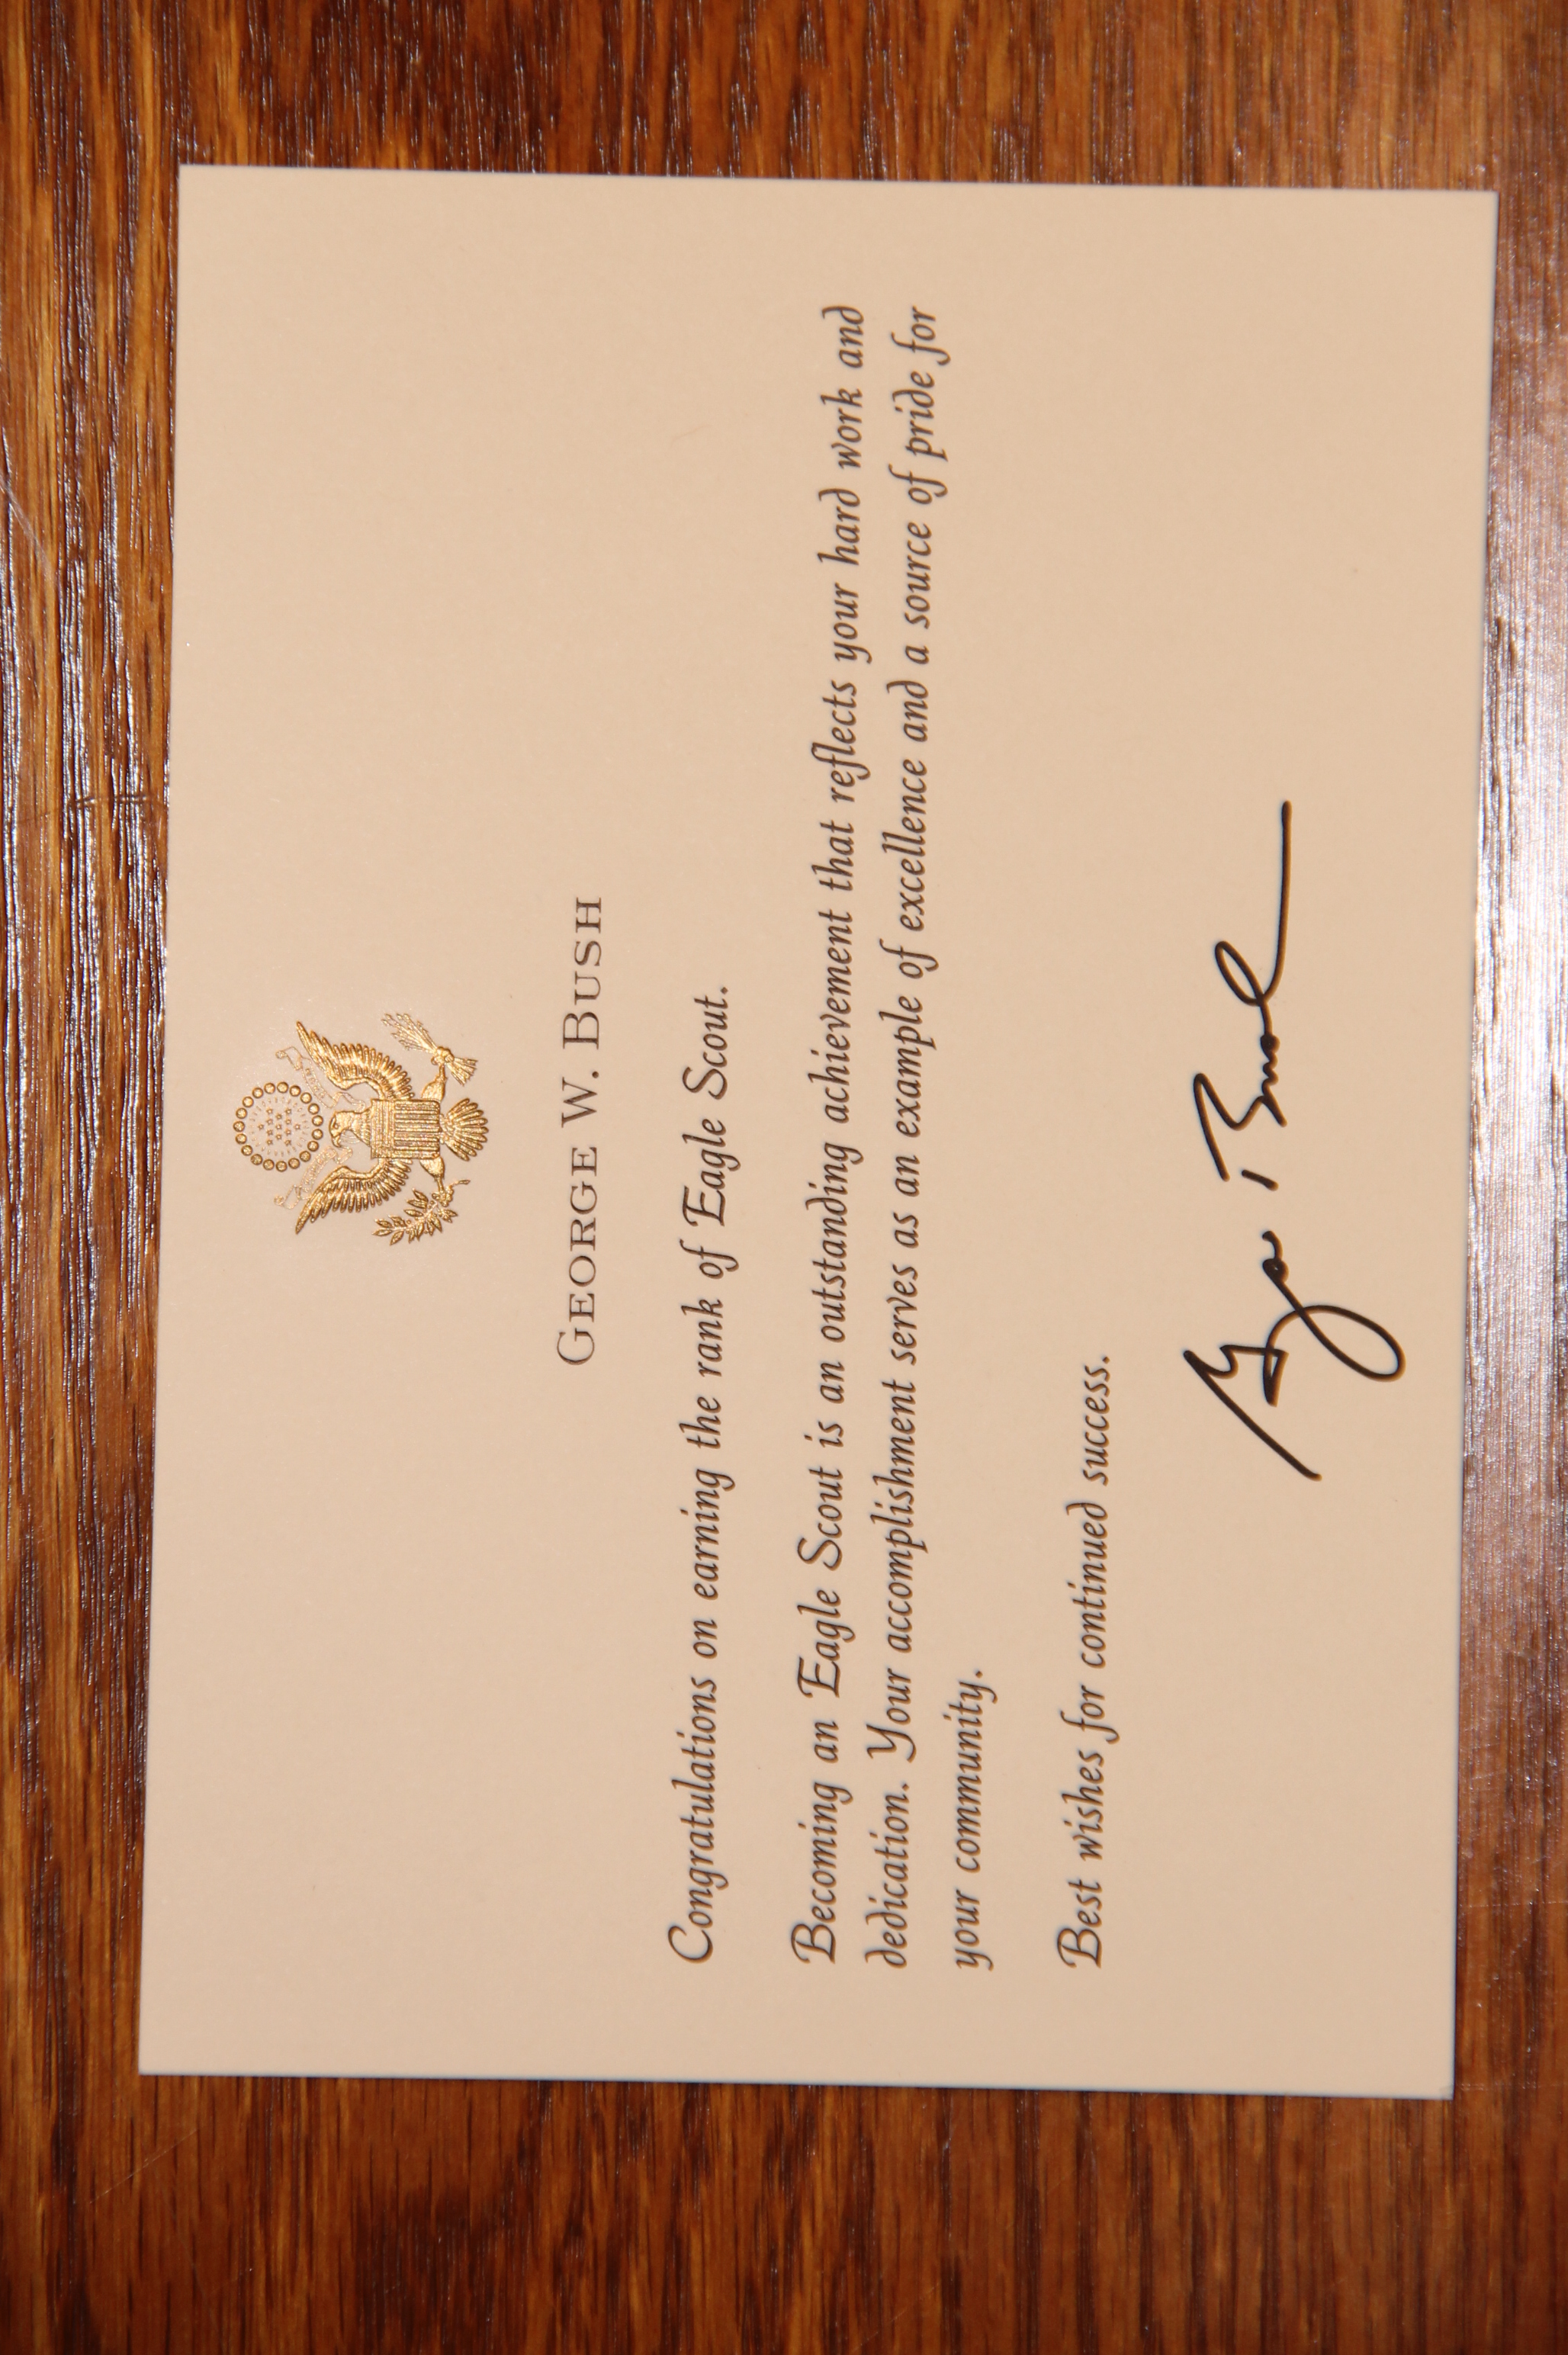 GEORGE W. BUSH
Congratulations on earning the rank of Eagle Scout.
Becoming an Eagle Scout is an outstanding achievement that reflects your hard work and
dedication. Your accomplishment serves as an example of excellence and a source of pride for
your community.
Best wishes for continued success.